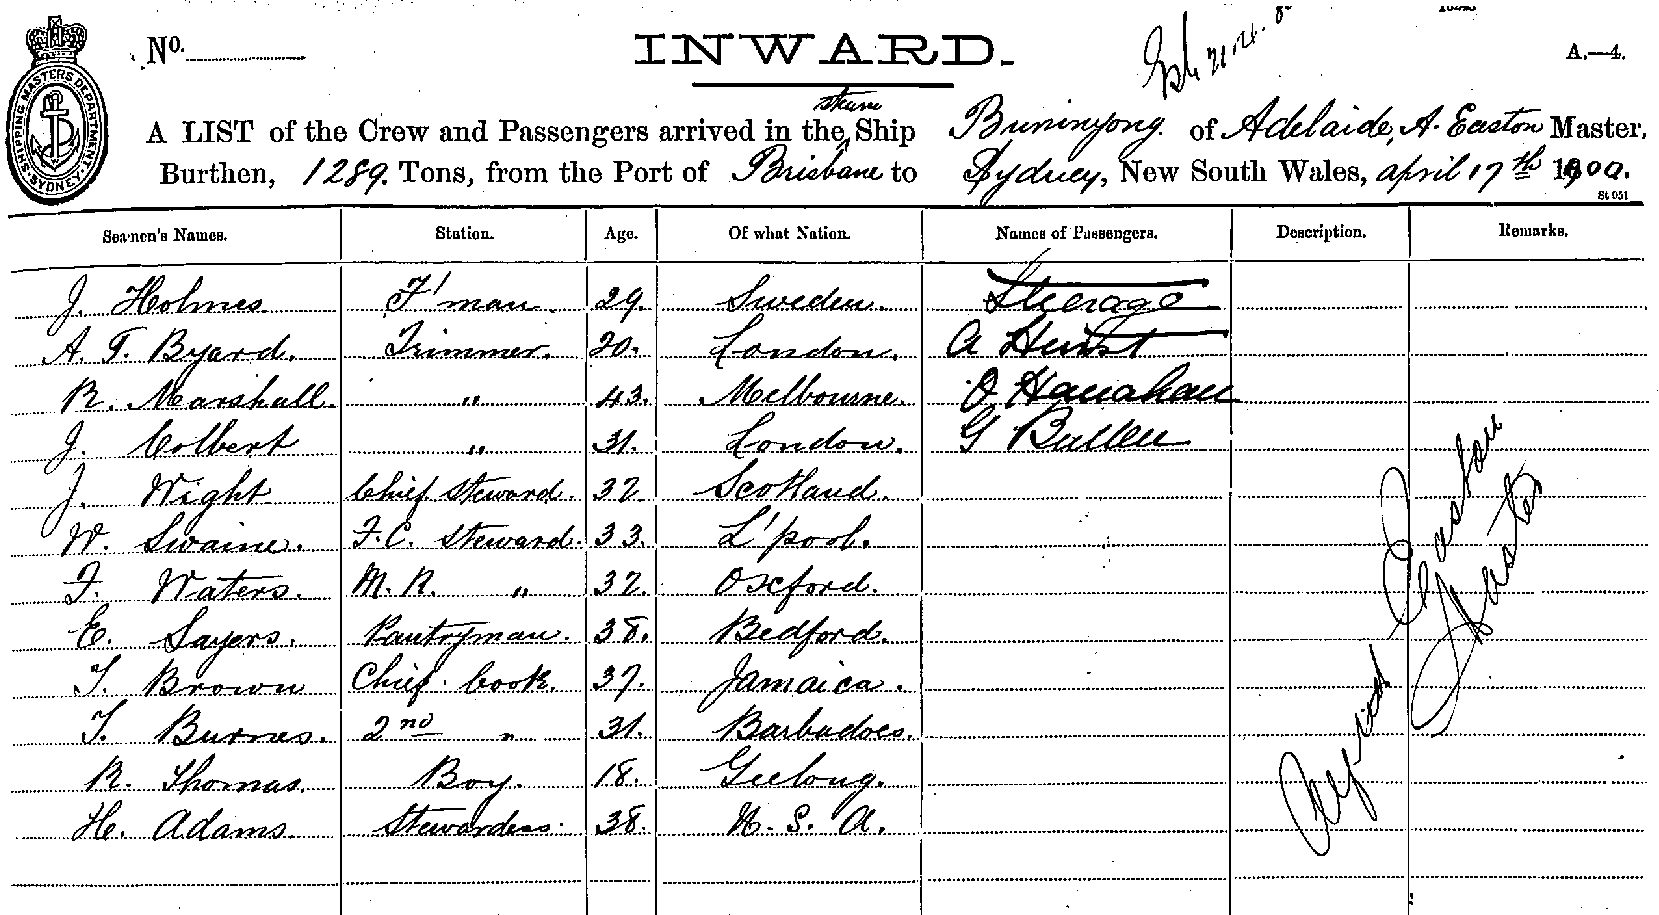 SHIPPING MASTERS DEPARTMENT. SYDNEY.
No.
INWARD.
A.—4.
A LIST of the Crew and Passengers arrived in the steam Ship Buninyong of Adelaide, A. Easton Master,
Burthen, 1289. Tons, from the Port of Brisbane to Sydney, New South Wales, april 17th 1900.
St 051
Seamen's Names. Station. Age. Of what Nation. Names of Passengers. Description. Remarks.
J. Holmes. F'man. 29. Sweden. Steerage
A. T. Byard. Trimmer. 20. London. A Hurst
R. Marshall. " 43. Melbourne. O Hanahan
J. Colbert " 31. London. G Bullen
J. Wight Chief Steward. 32 Scotland.
W. Swaine. F.C. Steward. 33. L'pool.
F. Waters. M.R. " 32. Oxford.
E. Sayers. Pantryman. 38. Bedford.
T. Brown Chief Cook. 37. Jamaica.
T. Burnes. 2nd " 31. Barbadoes.
R. Thomas. Boy. 18. Geelong.
H. Adams. Stewardess. 38. U.S.A.
Easton
Master